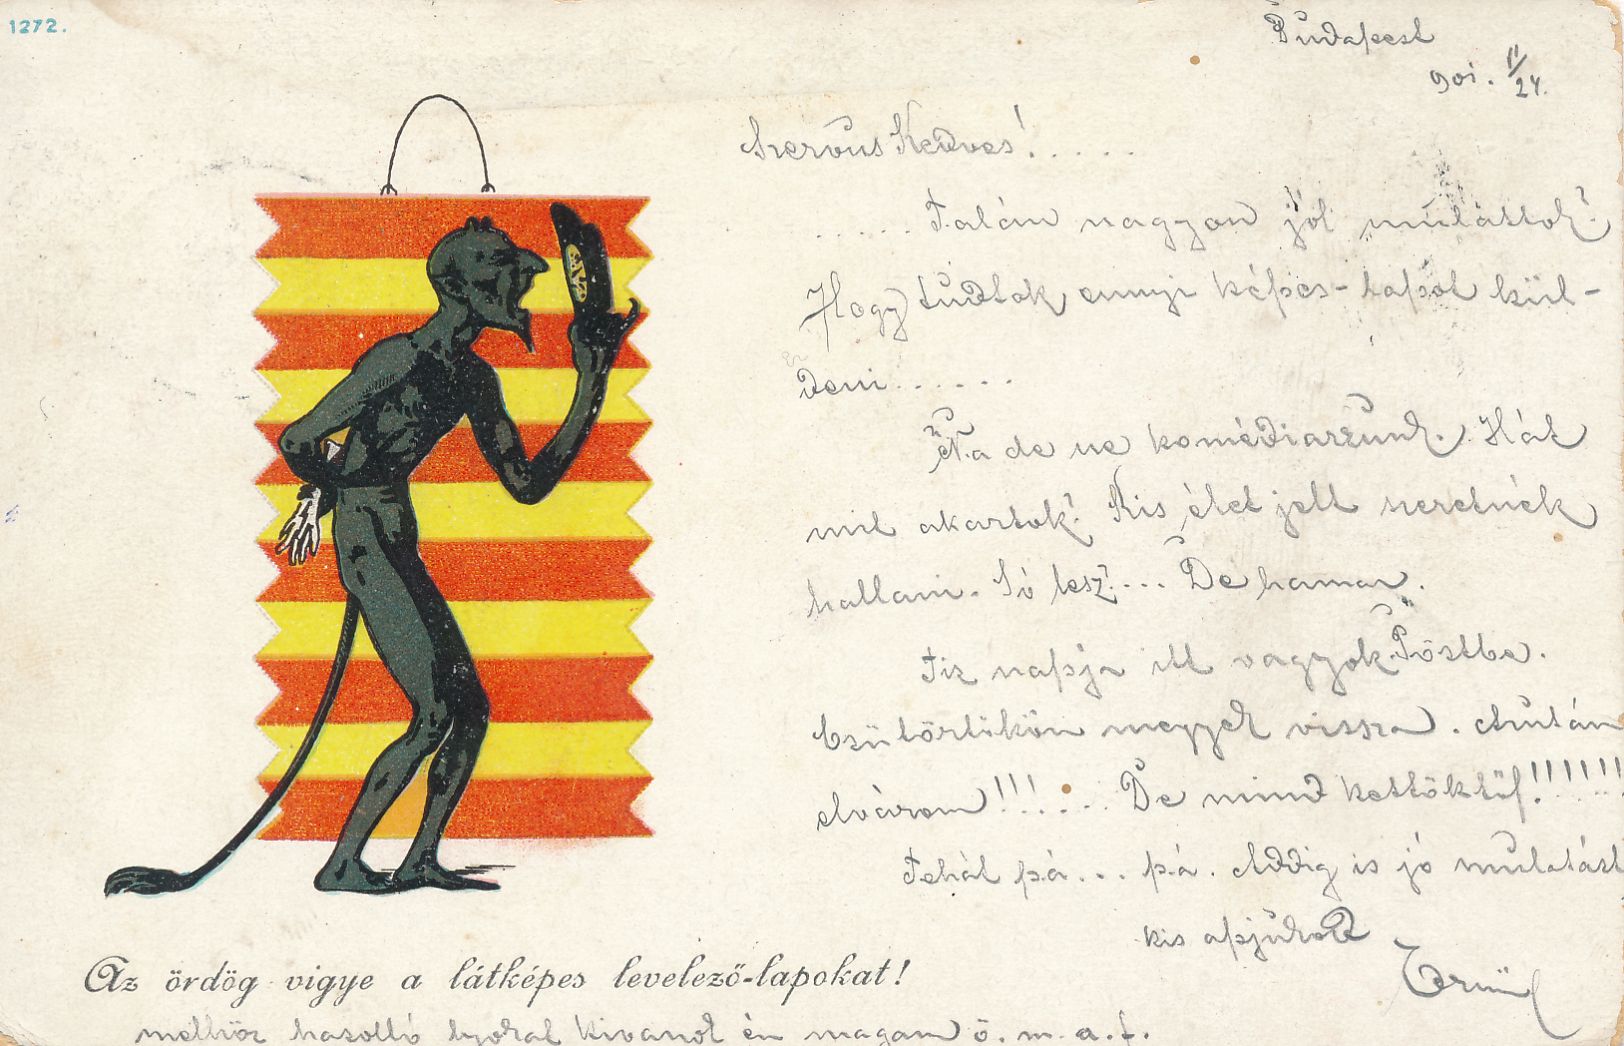 1272.
Budapest
901. 11/24.
Szervus Kedves!.....
..... Talán nagyon jól mulattok?
Hogy tudtok ennyi képes-lapot kül-
deni......
Na de ne komédiazzunk. Hát
mit akartok? Kis élet jelt szeretnék
hallani. Jó lesz?... De hamar.
Tiz napja itt vagyok Pestbe.
Csütörtökön megyek vissza. Azután
elvárom!!!.... De mind kettőktül!!!!!!!
Tehát pá... pá. Addig is jó mulatást
kis apjukod
Az ördög vigye a látképes levelező-lapokat!
melhöz hasolló kivanok én magam ö. m. a. f.